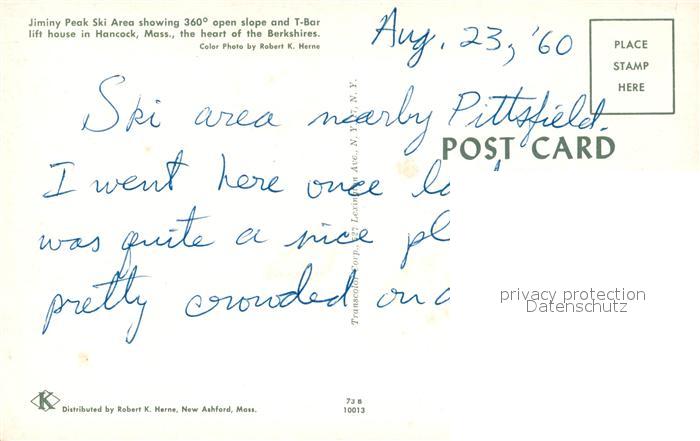 Jiminy Peak Ski Area showing 360° open slope and T-Bar
lift house in Hancock, Mass., the heart of the Berkshires.
Color Photo by Robert K. Herne
Aug. 23, '60
PLACE
STAMP
HERE
Ski area nearby Pittsfield.
POST CARD
I went here once
was quite a nice
pretty crowded
Transcolor Corp., 527 Lexington Ave., N. Y. 17, N. Y.
privacy protection
Datenschutz
K
Distributed by Robert K. Herne, New Ashford, Mass.
73 B
10013